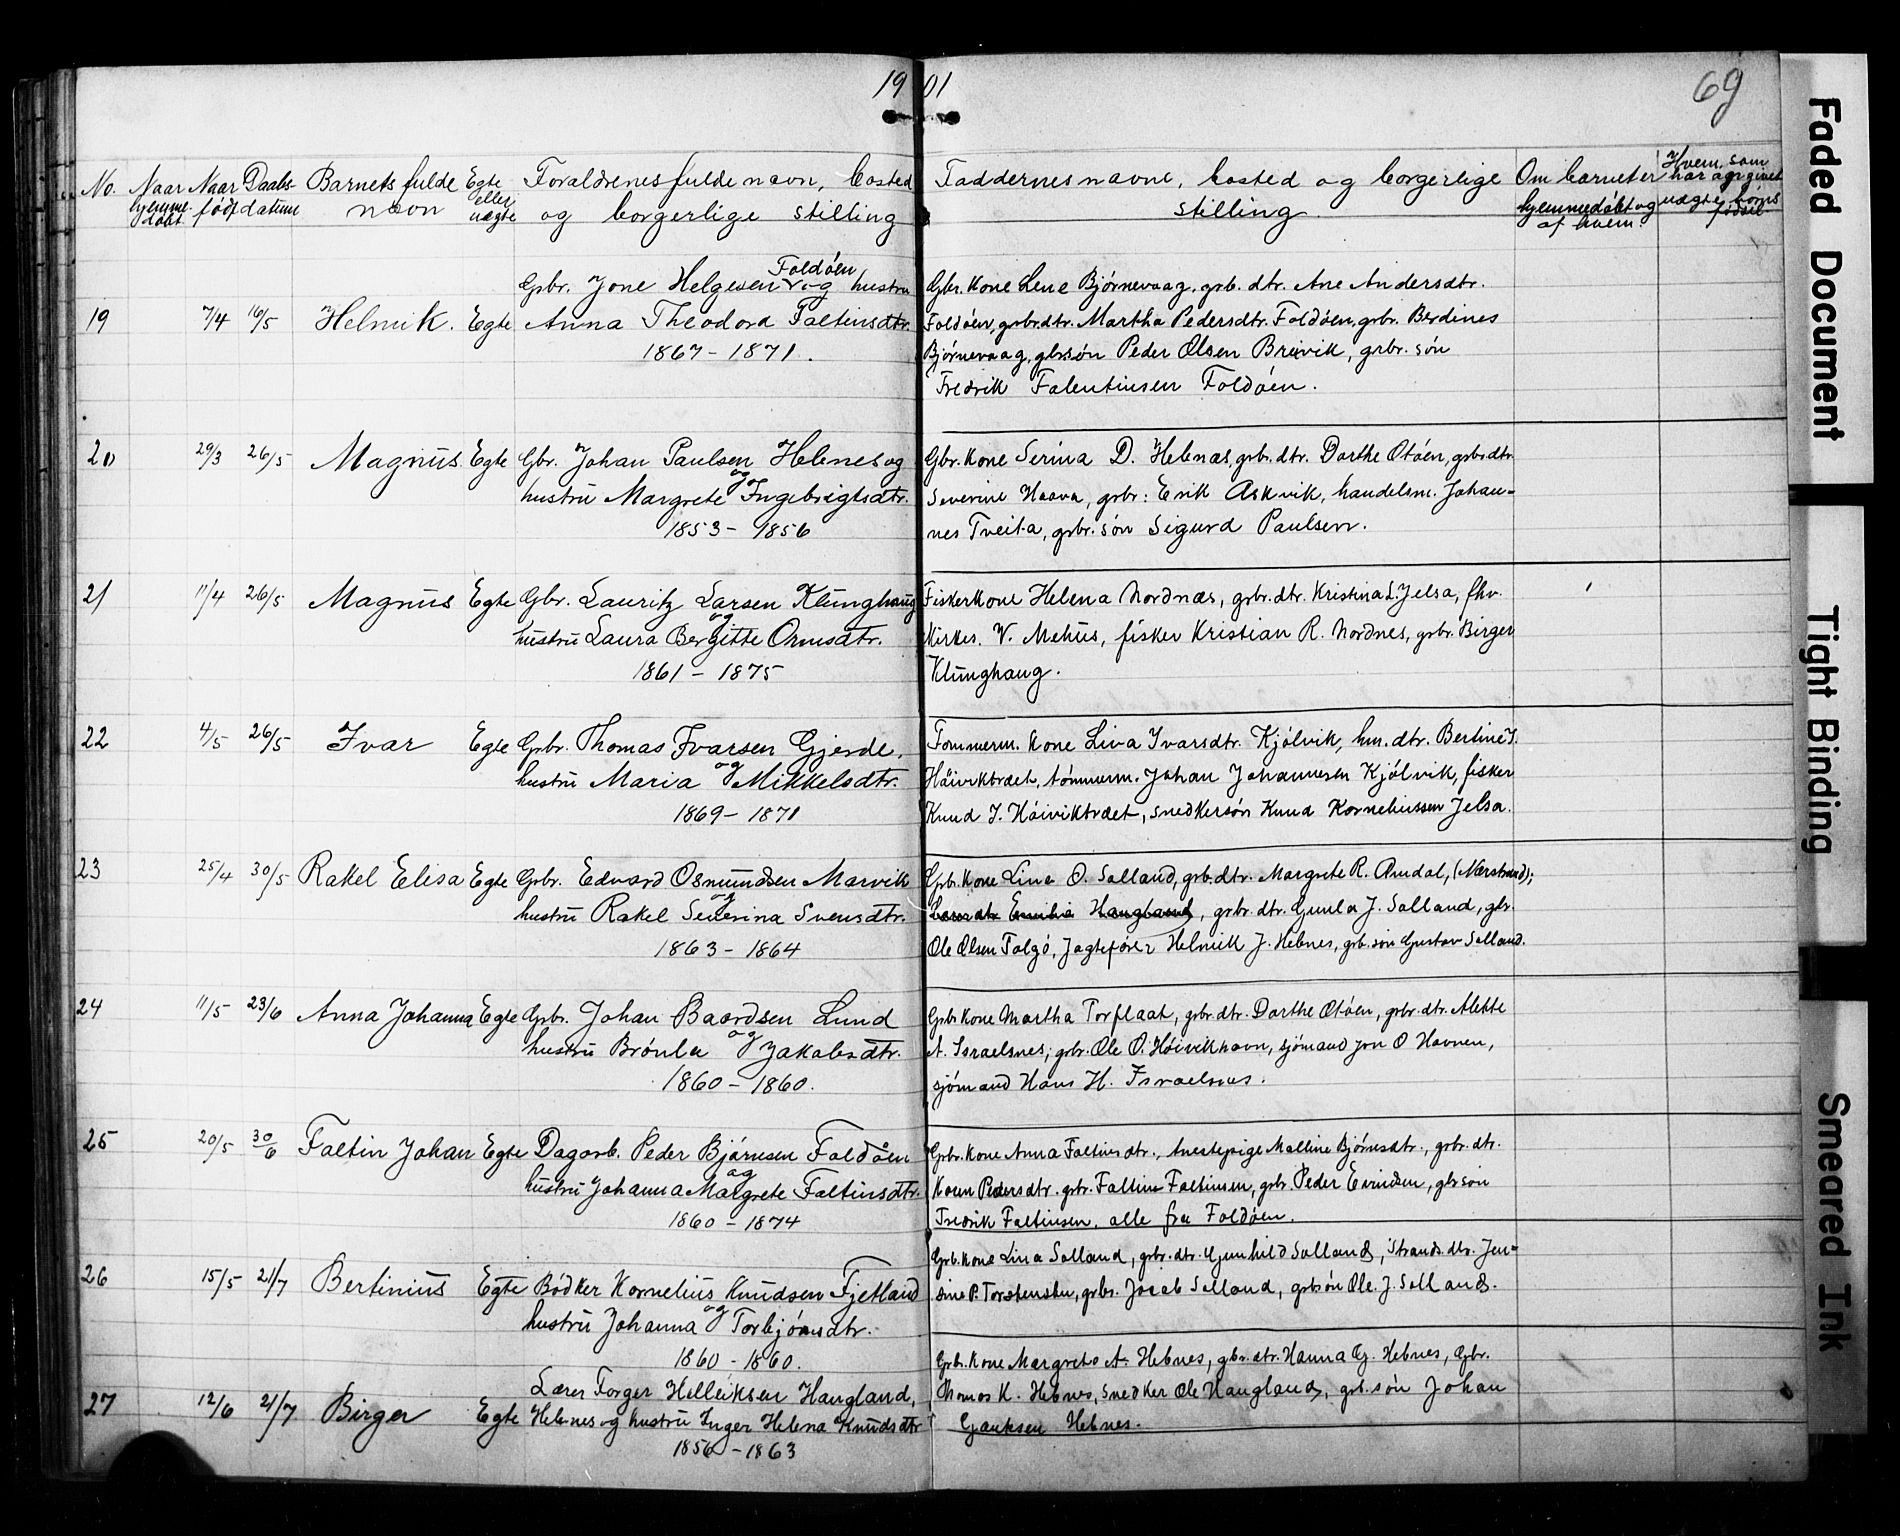 1901
69
No. Naar hjemmedøbt Naar født Daabsdatum Barnets fulde navn Egte eller uægte Forældrenes fulde navn, bosted og borgerlige stilling Faddernes navne, bosted og borgerlige stilling. Om barnet er hjemmedøbt og af hvem? Hvem, som har angivet uægte børns fødsel.
19 7/4 16/5 Helmik. Egte
Gbr. Jone Helgesen Foldøen og hustru
Anna Theodora Faltinsdtr.
1867 - 1871.
Gbr. kone Lene Bjørnevaag, grb. dtr. Ane Andersdtr.
Foldøen, grbr. dtr. Martha Pedersdtr. Foldøen, grbr. Berdines
Bjørnevaag, gbr. søn Peder Olsen Breivik, grbr. søn
Fredrik Falentinsen Foldøen.
20 29/3 26/5 Magnus. Egte
Gbr. Johan Paulsen Hebnes og
hustru Margrete Ingebrigtsdtr.
1853 - 1856
Gbr. kone Serina D. Hebnæs, grb. dtr. Dorthe Otøen, grbr. dtr.
Severine Haava, grbr: Erik Askvik, handelsm. Johan-
nes Tveita, grbr. søn Sigurd Paulsen.
21 11/4 26/5 Magnus Egte
Gbr. Lauritz Larsen Klunghaug
og
hustru Laura Bergitte Ormsdtr.
1861 - 1875
Fiskerkone Helena Nordnæs, grbr. dtr. Kristina L. Jelsa, fhv.
Kirkes. V. Mehus, fisker Kristian R. Nordnes, grbr. Birger
Klunghaug.
22 4/5 26/5 Ivar Egte
Grbr. Thomas Ivarsen Gjerde,
hustru Maria og Mikkelsdtr.
1869 - 1871
Tømmerm. kone Liva Ivarsdtr. Kjølvik, hm. dtr. Bertine I.
Høiviktræet, tømmerm. Johan Johannesen Kjølvik, fisker
Knud I. Høiviktræet, snedkersøn Knud Korneliussen Jelsa.
23 25/4 30/5 Rakel Elisa Egte
Grbr. Edvard Osmundsen Marvik
og
hustru Rakel Severina Svensdtr.
1863 - 1864
Grb. kone Lina O. Salland, grb. dtr. Margrete R. Amdal, (Nærstrand);
Emilia Haugland, grbr. dtr. Gunla J. Salland, gbr.
Ole Olsen Talgø, Jagtefører Helmik J. Hebnes, grb. søn Gustav Salland.
24 11/5 23/6 Anna Johanna Egte
Grbr. Johan Baardsen Lund
og
hustru Brønla Jakobsdtr.
1860 - 1860.
Grbr kone Martha Torflaat, grbr. dtr. Dorthe Otøen, grbr. dtr. Alekte
A. Israelsnes, grbr. Ole O. Høivikhavn, sjømand Jon O Havnen,
sjømand Hans H. Israelsnes.
25 20/5 30/6 Faltin Johan Egte
Dagarb. Peder Bjørnsen Foldøen
og
hustru Johanna Margrete Faltinsdtr.
1860 - 1874
Grbr. kone Anna Faltinsdtr., tjenestepige Malline Bjørnsdtr., grbr. dtr.
Karen Pedersdtr. grbr. Faltin Faltinsen, grbr. Peder Evindsen, gbr søn
Fredrik Faltinsen, alle fra Foldøen.
26 15/5 21/7 Bertinius Egte
Bødker Kornelius Knudsen Fjetland
og
hustru Johanna Torbjørnsdtr.
1860 - 1860.
Grb. kone Lina Salland, grbr. dtr. Gunhild Salland, Strands. dtr. Jen-
sine P. Torstensen, grbr. Jacob Salland, grb søn Ole. J. Salland.
27 12/6 21/7 Birger Egte
Lærer Torger Helleiksen Haugland,
Hebnes og hustru Inger Helena Knudsdtr
1856 - 1863
Grb. kone Margrete A. Hebnes, gbr. dtr. Hanna G. Hebnes, Gbr.
Thomas K. Hebnes, Snedker Ole Haugland, grb. søn Johan
Gautesen Hebnes.
Faded Document
Tight Binding
Smeared Ink